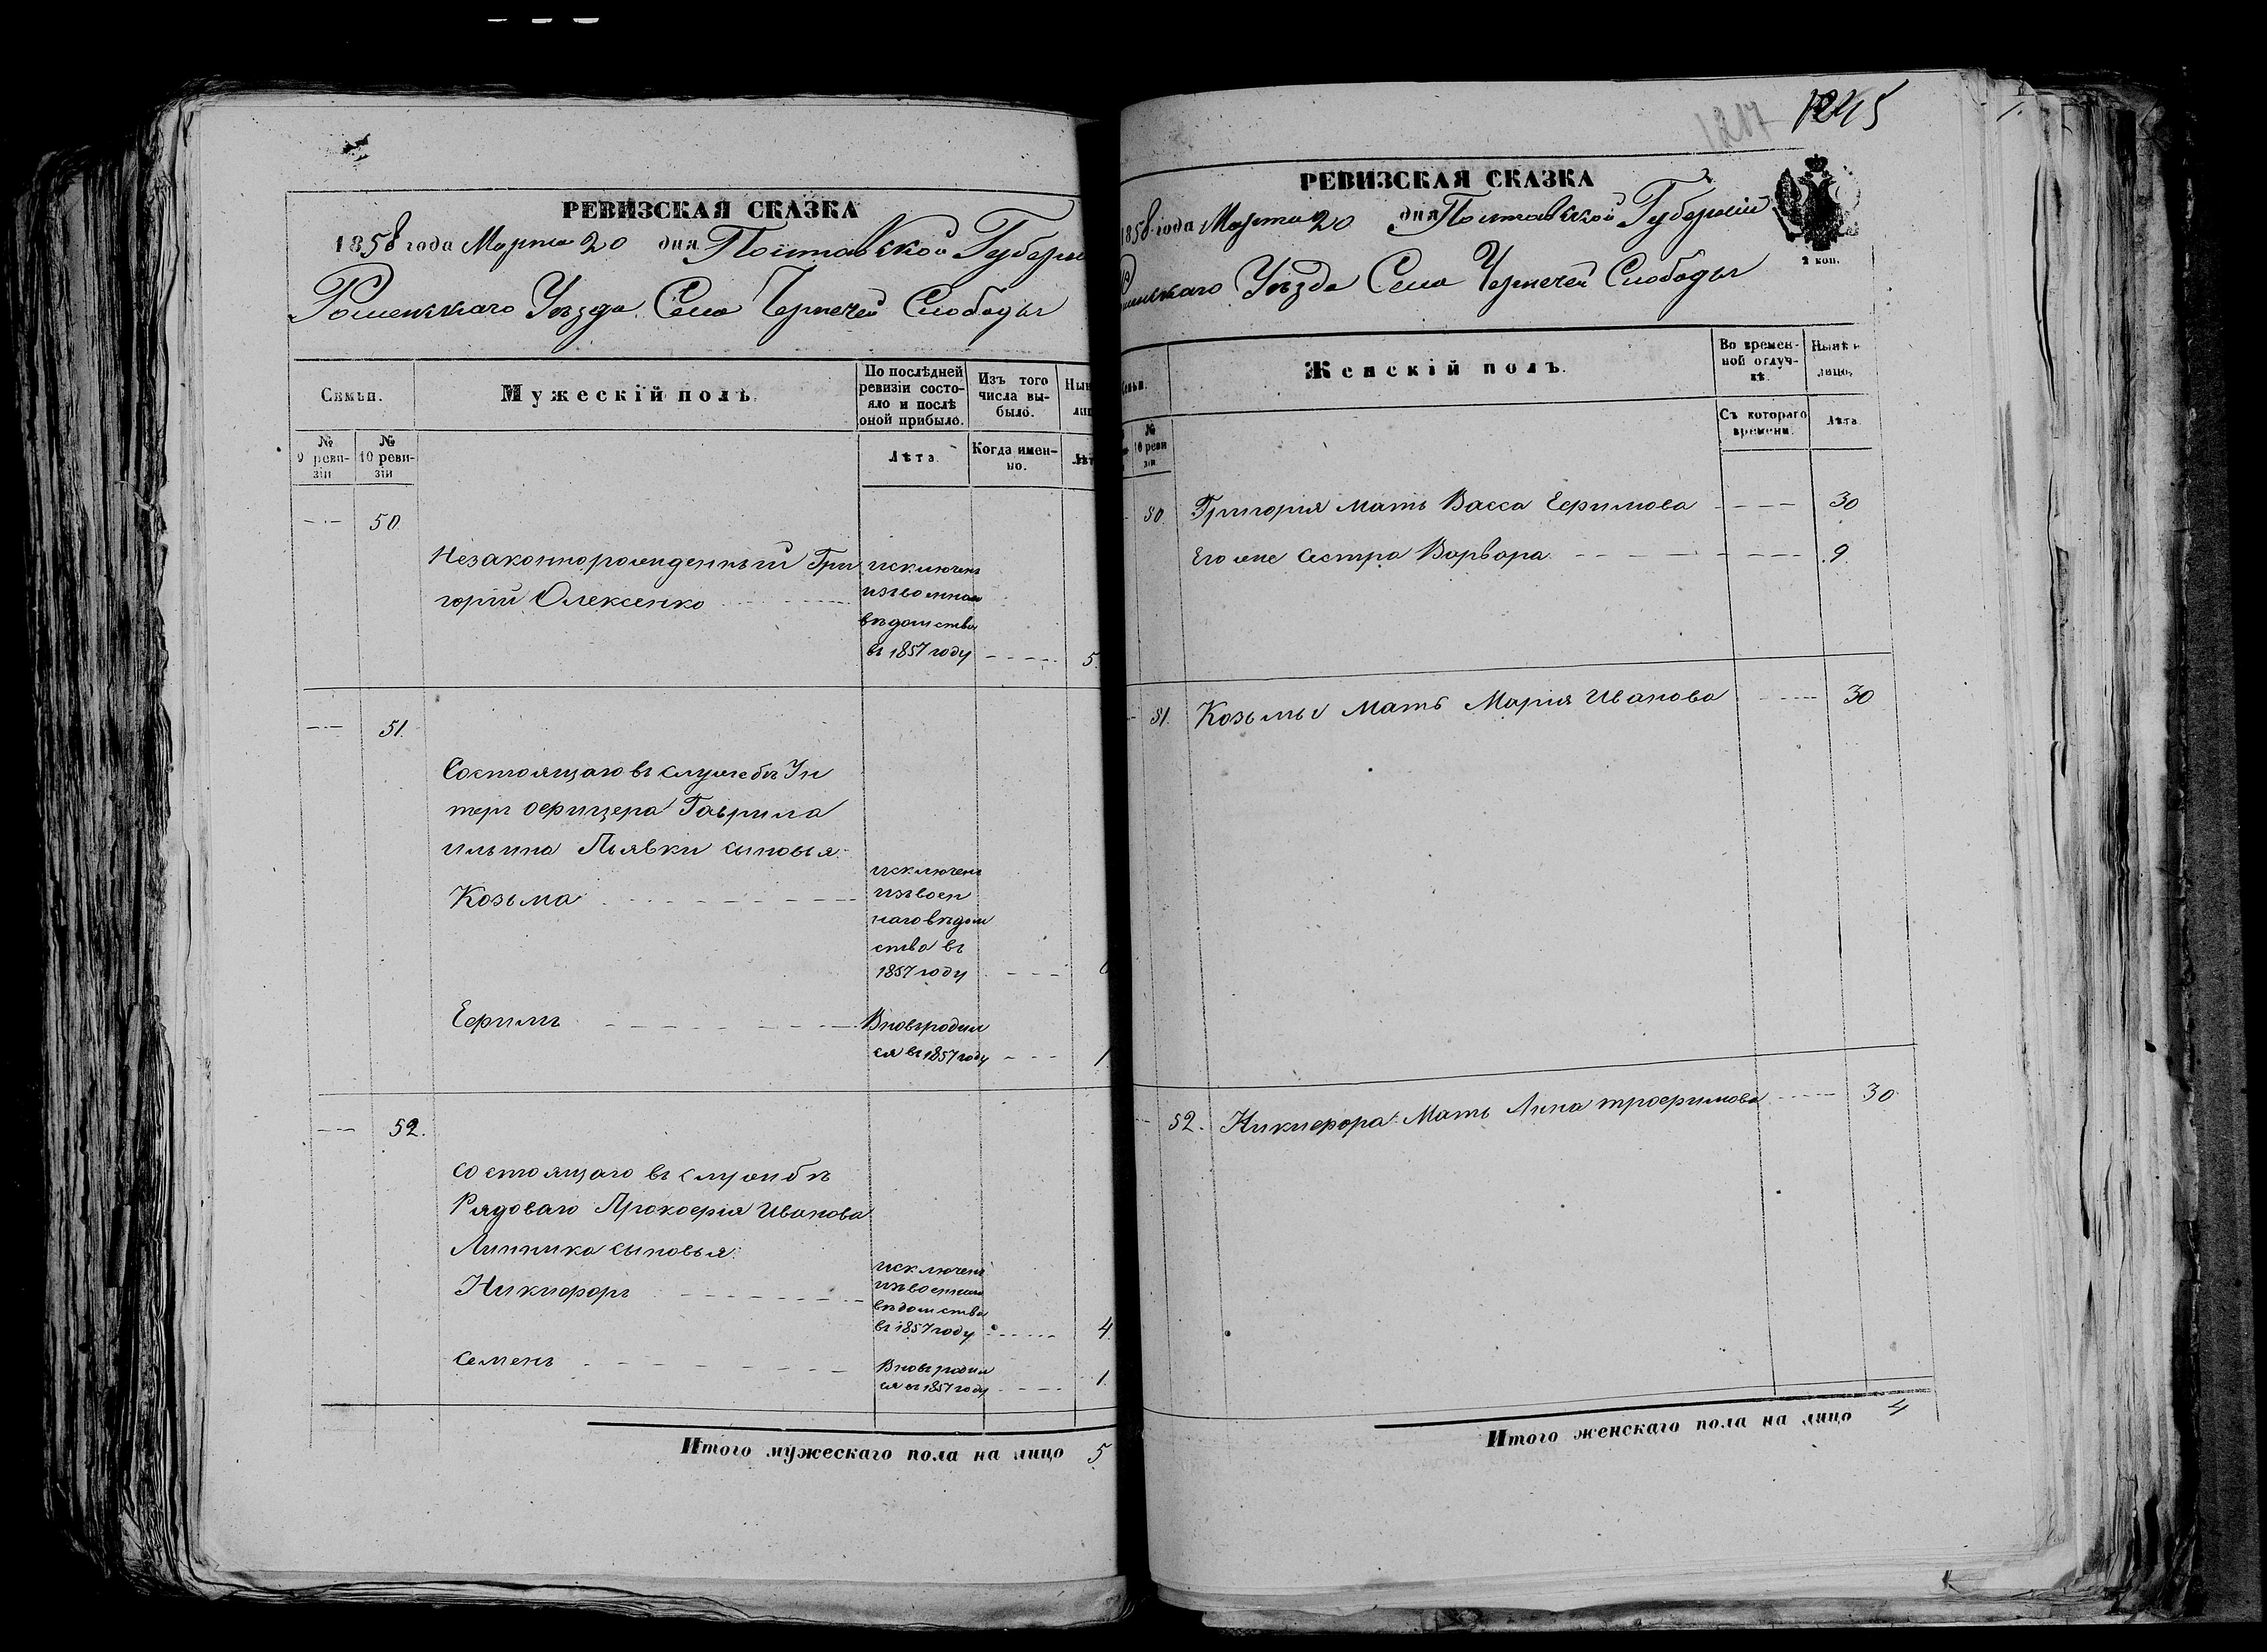 РЕВИЗСКАЯ СКАЗКА
1858 года Марта 20 дня Полтавской Губерн
Роменскаго Уѣзда Села Чернечей Слободы
Семьи.
Мужескій полъ.
По послѣдней ревизіи состояло и послѣ оной прибыло.
Изъ того числа выбыло.
Нын
лиц
№ 9 ревизіи
№ 10 ревизіи
Лѣта.
Когда именно.
Лѣт
50
Незаконнорожденный Гри
горій Олексенко
исключенъ
изъ военнаго
вѣдомства
въ 1857 году
5.
51.
Состоящаго въ службѣ Ун
теръ офицера Гаврила
Ильина Пьявки сыновья:
Козьма
исключенъ
изъ воен
наго вѣдом
ства въ
1857 году
6
Ефимъ
Вновь родил
ся въ 1857 году
1
52.
состоящаго въ службѣ
Рядоваго Прокофія Иванова
Линника сыновья:
Никифоръ
исключенъ
изъ военнаго
вѣдомства
въ 1857 году
4.
Семенъ
Вновь родил
ся въ 1857 году
1.
Итого мужескаго пола на лицо 5
1217 1245
РЕВИЗСКАЯ СКАЗКА
1858 года Марта 20 дня Полтавской Губерніи
2 коп.
менскаго Уѣзда Села Чернечей Слободы
Семьи.
Женскій полъ.
Во временной отлучкѣ.
Нынѣ н
лицо.
№ 10 ревизіи
Съ котораго времени.
Лѣта.
50. Григорія мать Васса Ефимова 30
Его же сестра Варвара 9.
51. Козьмы Мать Марія Иванова 30
52. Никифора Мать Анна трофимова 30
Итого женскаго пола на лицо 4